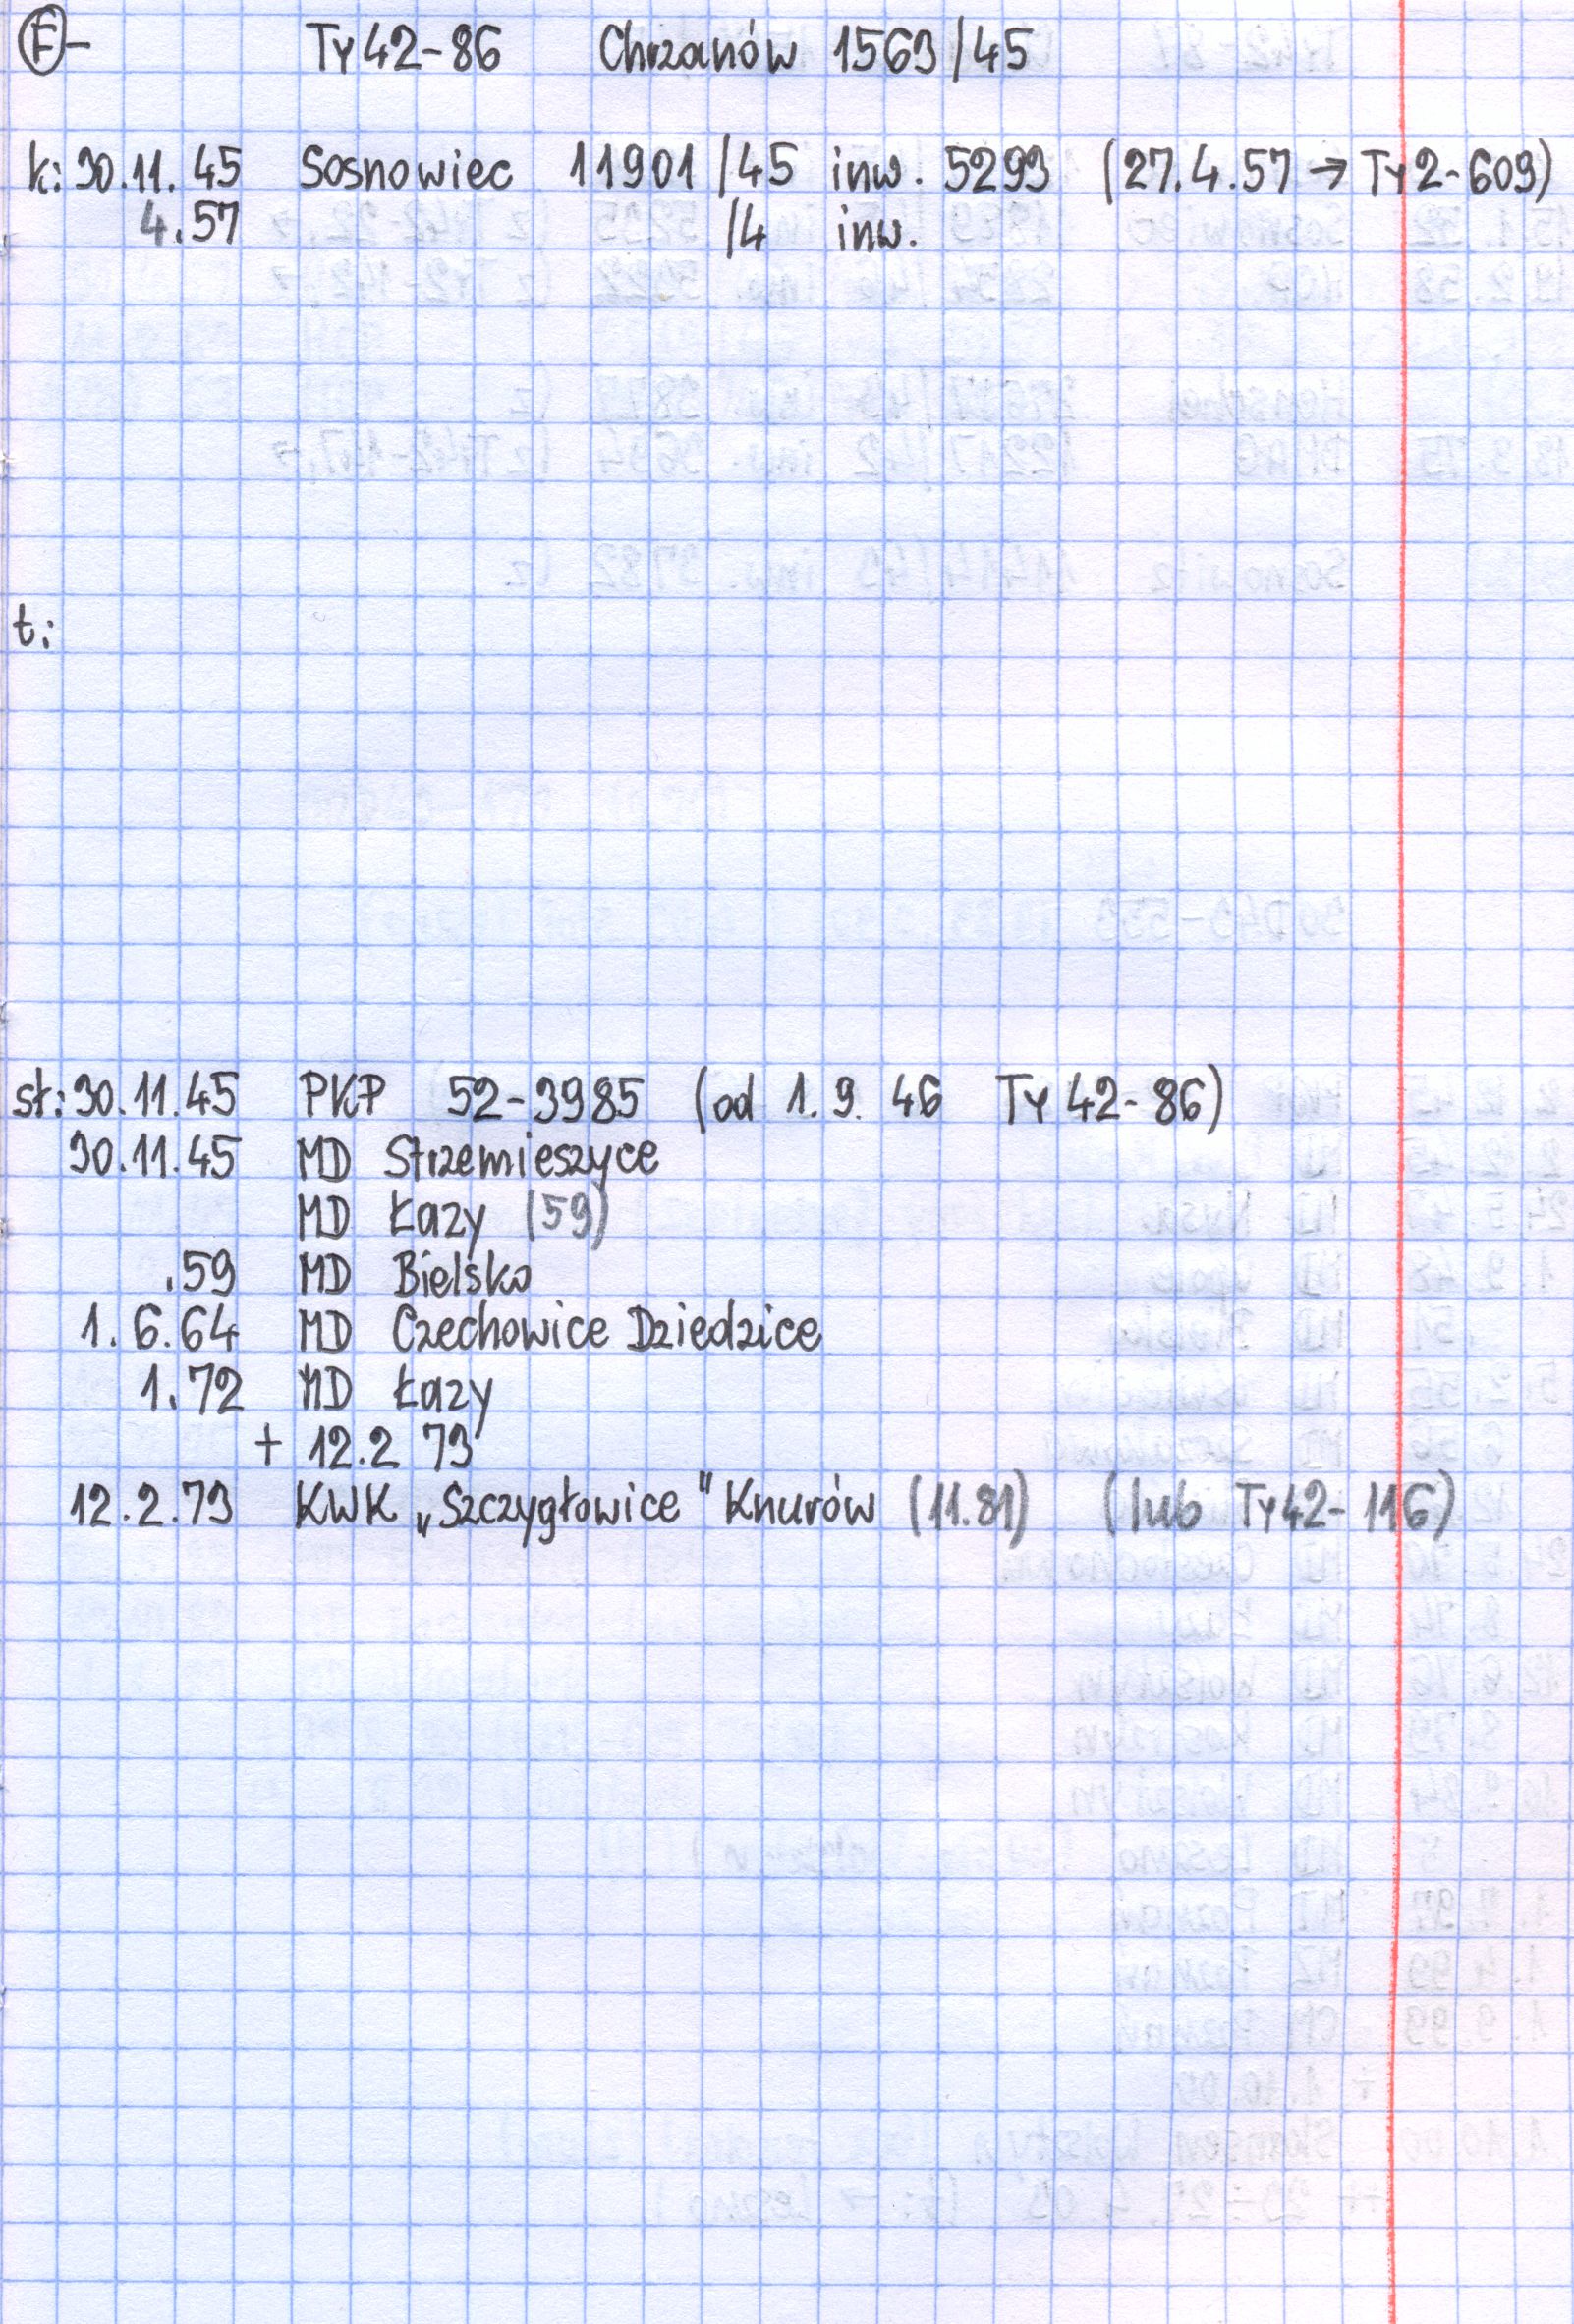 Ⓕ- Ty42-86 Chrzanów 1563/45
k: 30.11.45 Sosnowiec 11901/45 inw. 5293 (27.4.57 → Ty2-609)
4.57 /4 inw.
t:
st: 30.11.45 PKP 52-3985 (od 1.9.46 Ty42-86)
30.11.45 MD Strzemieszyce
MD Łazy (59)
.59 MD Bielsko
1.6.64 MD Czechowice Dziedzice
1.72 MD Łazy
+ 12.2 73
12.2.73 KWK „Szczygłowice" Knurów (11.81) (lub Ty42-116)